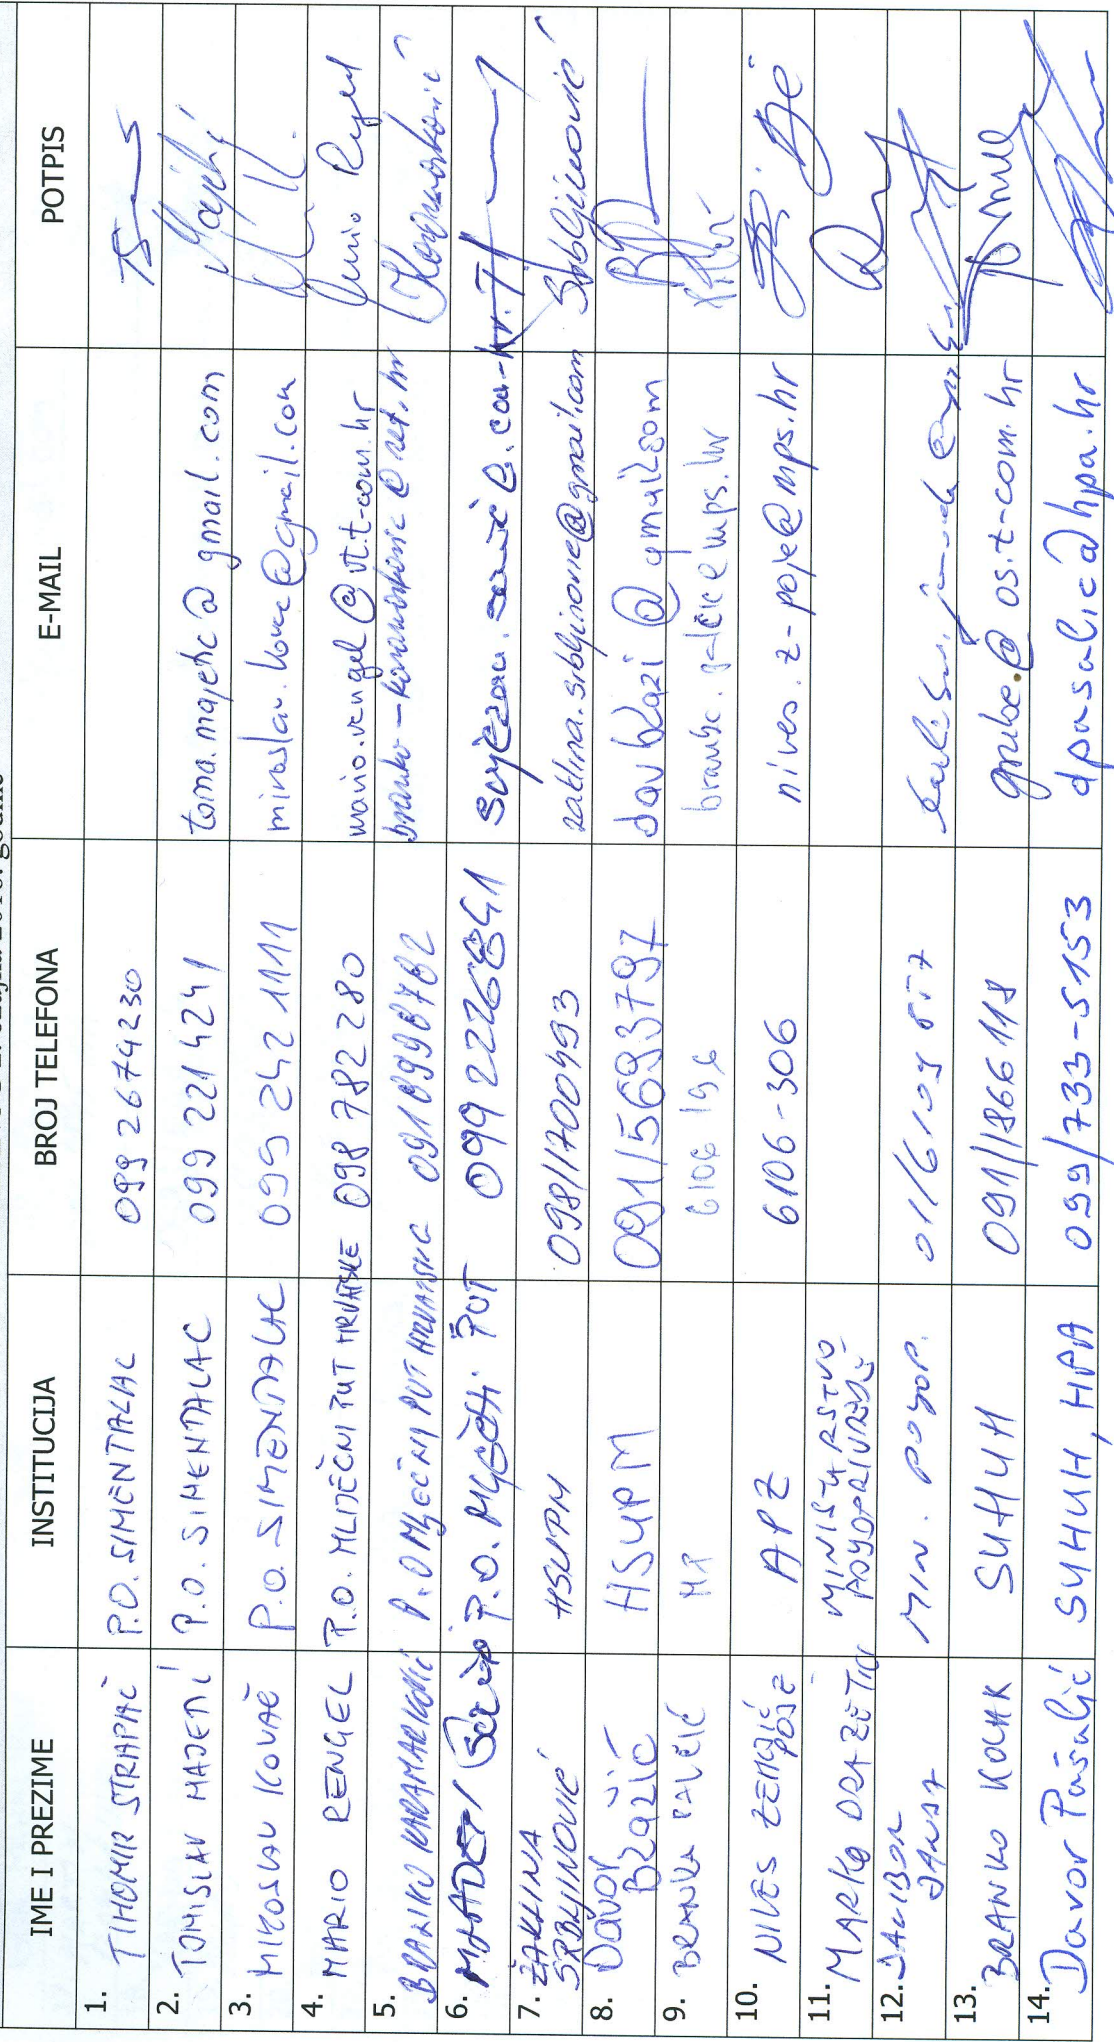 IME I PREZIME INSTITUCIJA BROJ TELEFONA E-MAIL POTPIS
1. TIHOMIR STRAPAČ P.O. SIMENTALAC 099 2674230
2. TOMISLAV MAJETIĆ P.O. SIMENTALAC 099 221 4241 toma.majetic@gmail.com
3. MIROSLAV KOVAČ P.O. SIMENTALAC 099 242 1111 miroslav.kovac@gmail.com
4. MARIO RENGEL P.O. MLIJEČNI PUT HRVATSKE 098 782 280 mario.rengel@vt.t-com.hr
5. BRANKO KARAMARKOVIĆ P.O MLJEČNI PUT HRVATSKE
6. P.O. PUT 099 2226841
7. ŽAKLINA SRBLJINOVIĆ HSUPM 098/1700493 zaklina.srbljinovic@gmail.com Srbljinović
8. Davor Blažić HSUPM 091/5693797
9. BRANKA MP 6106 196
10. NIVES ŽEMLJIĆ POJE APZ 6106-306 nives.z-poje@mps.hr
11. MARKO DRAŽETIĆ MINISTARSTVO POLJOPRIVREDE
12. DALIBOR JANDA MIN. POLJOP.
13. BRANKO KOLAK SUHUH 091/1866118 @os.t-com.hr
14. Davor Pašalić SUHUH, HPA 099/733-5153 dpasalic@hpa.hr